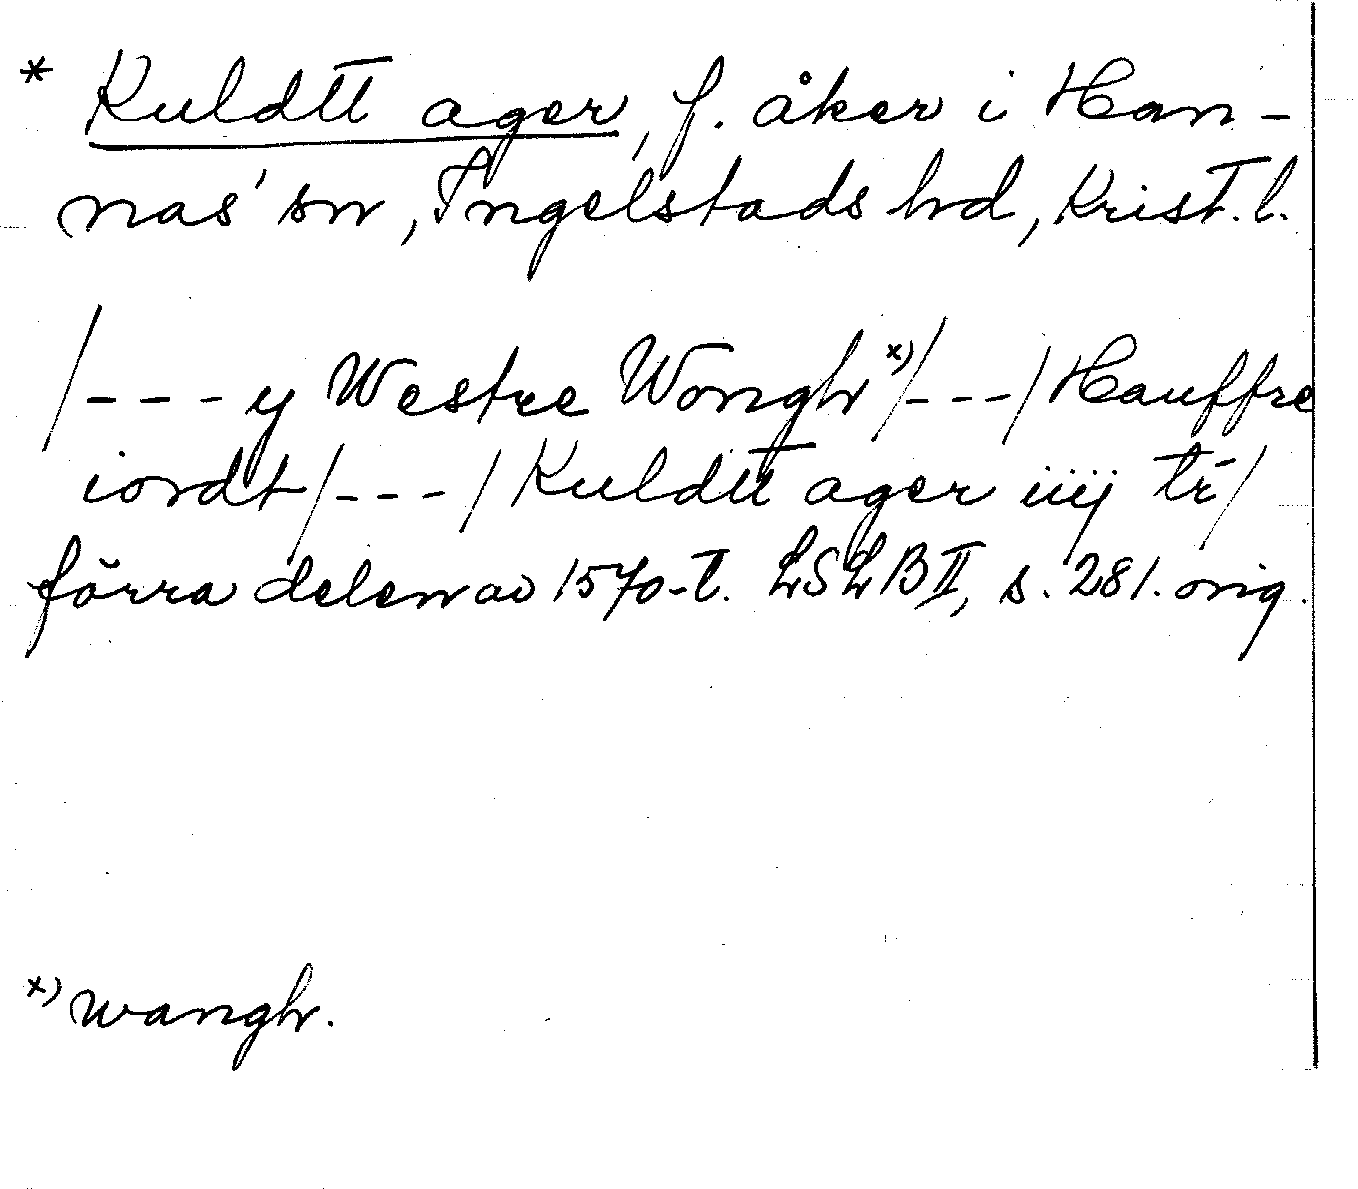 * Kuldtt ager, f. åker i Han-
nas' sn, Ingelstads hd, Krist. l.
/--- y Westre Wongh x)/---/ Hauffre
iordt/---/ Kuldtt ager iiij tr/
förra delen av 1570-t. LSLB II, s. 281. orig.
x) wangh.